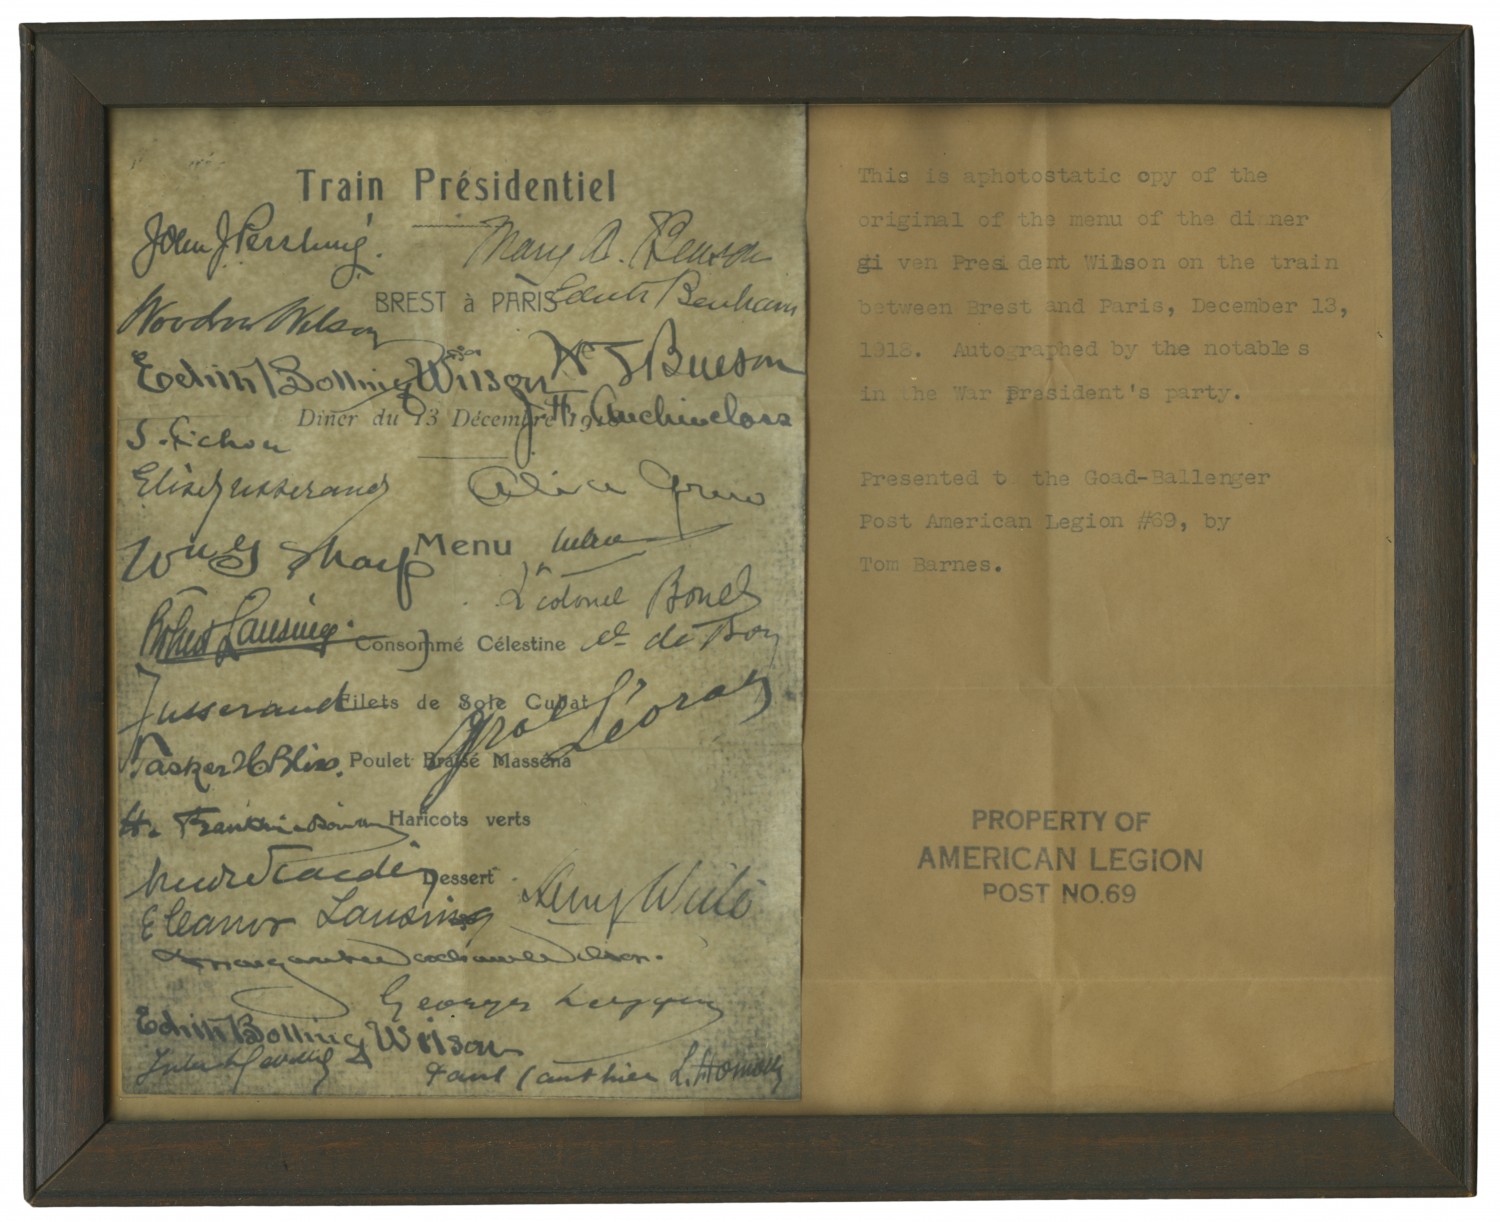 Train Présidentiel
John J. Pershing.
Mary A. Benson
BREST à PARIS
Edith Benham
Woodrow Wilson
Edith Bolling Wilson
W S Benson
Diner du 13 Décembre 1918
Auchincloss
S. Pichon
Elise Jusserand
Alice Grew
Menu
Wm G Sharp
Lt Colonel
Robert Lansing.
Consommé Célestine
de
Jusserand
Filets de Sole Cubat
Gral
Tasker H Bliss.
Poulet Braisé Masséna
H.
Haricots verts
André Tardieu
Dessert
Henry White
Eleanor Lansing
Margaret Woodrow Wilson.
Georges Leygues
Edith Bolling Wilson
Paul Gauthier
This is aphotostatic opy of the
original of the menu of the dinner
gi ven President Wilson on the train
between Brest and Paris, December 13,
1918. Autographed by the notables
in the War President's party.
Presented t the Goad-Ballenger
Post American Legion #69, by
Tom Barnes.
PROPERTY OF
AMERICAN LEGION
POST NO.69